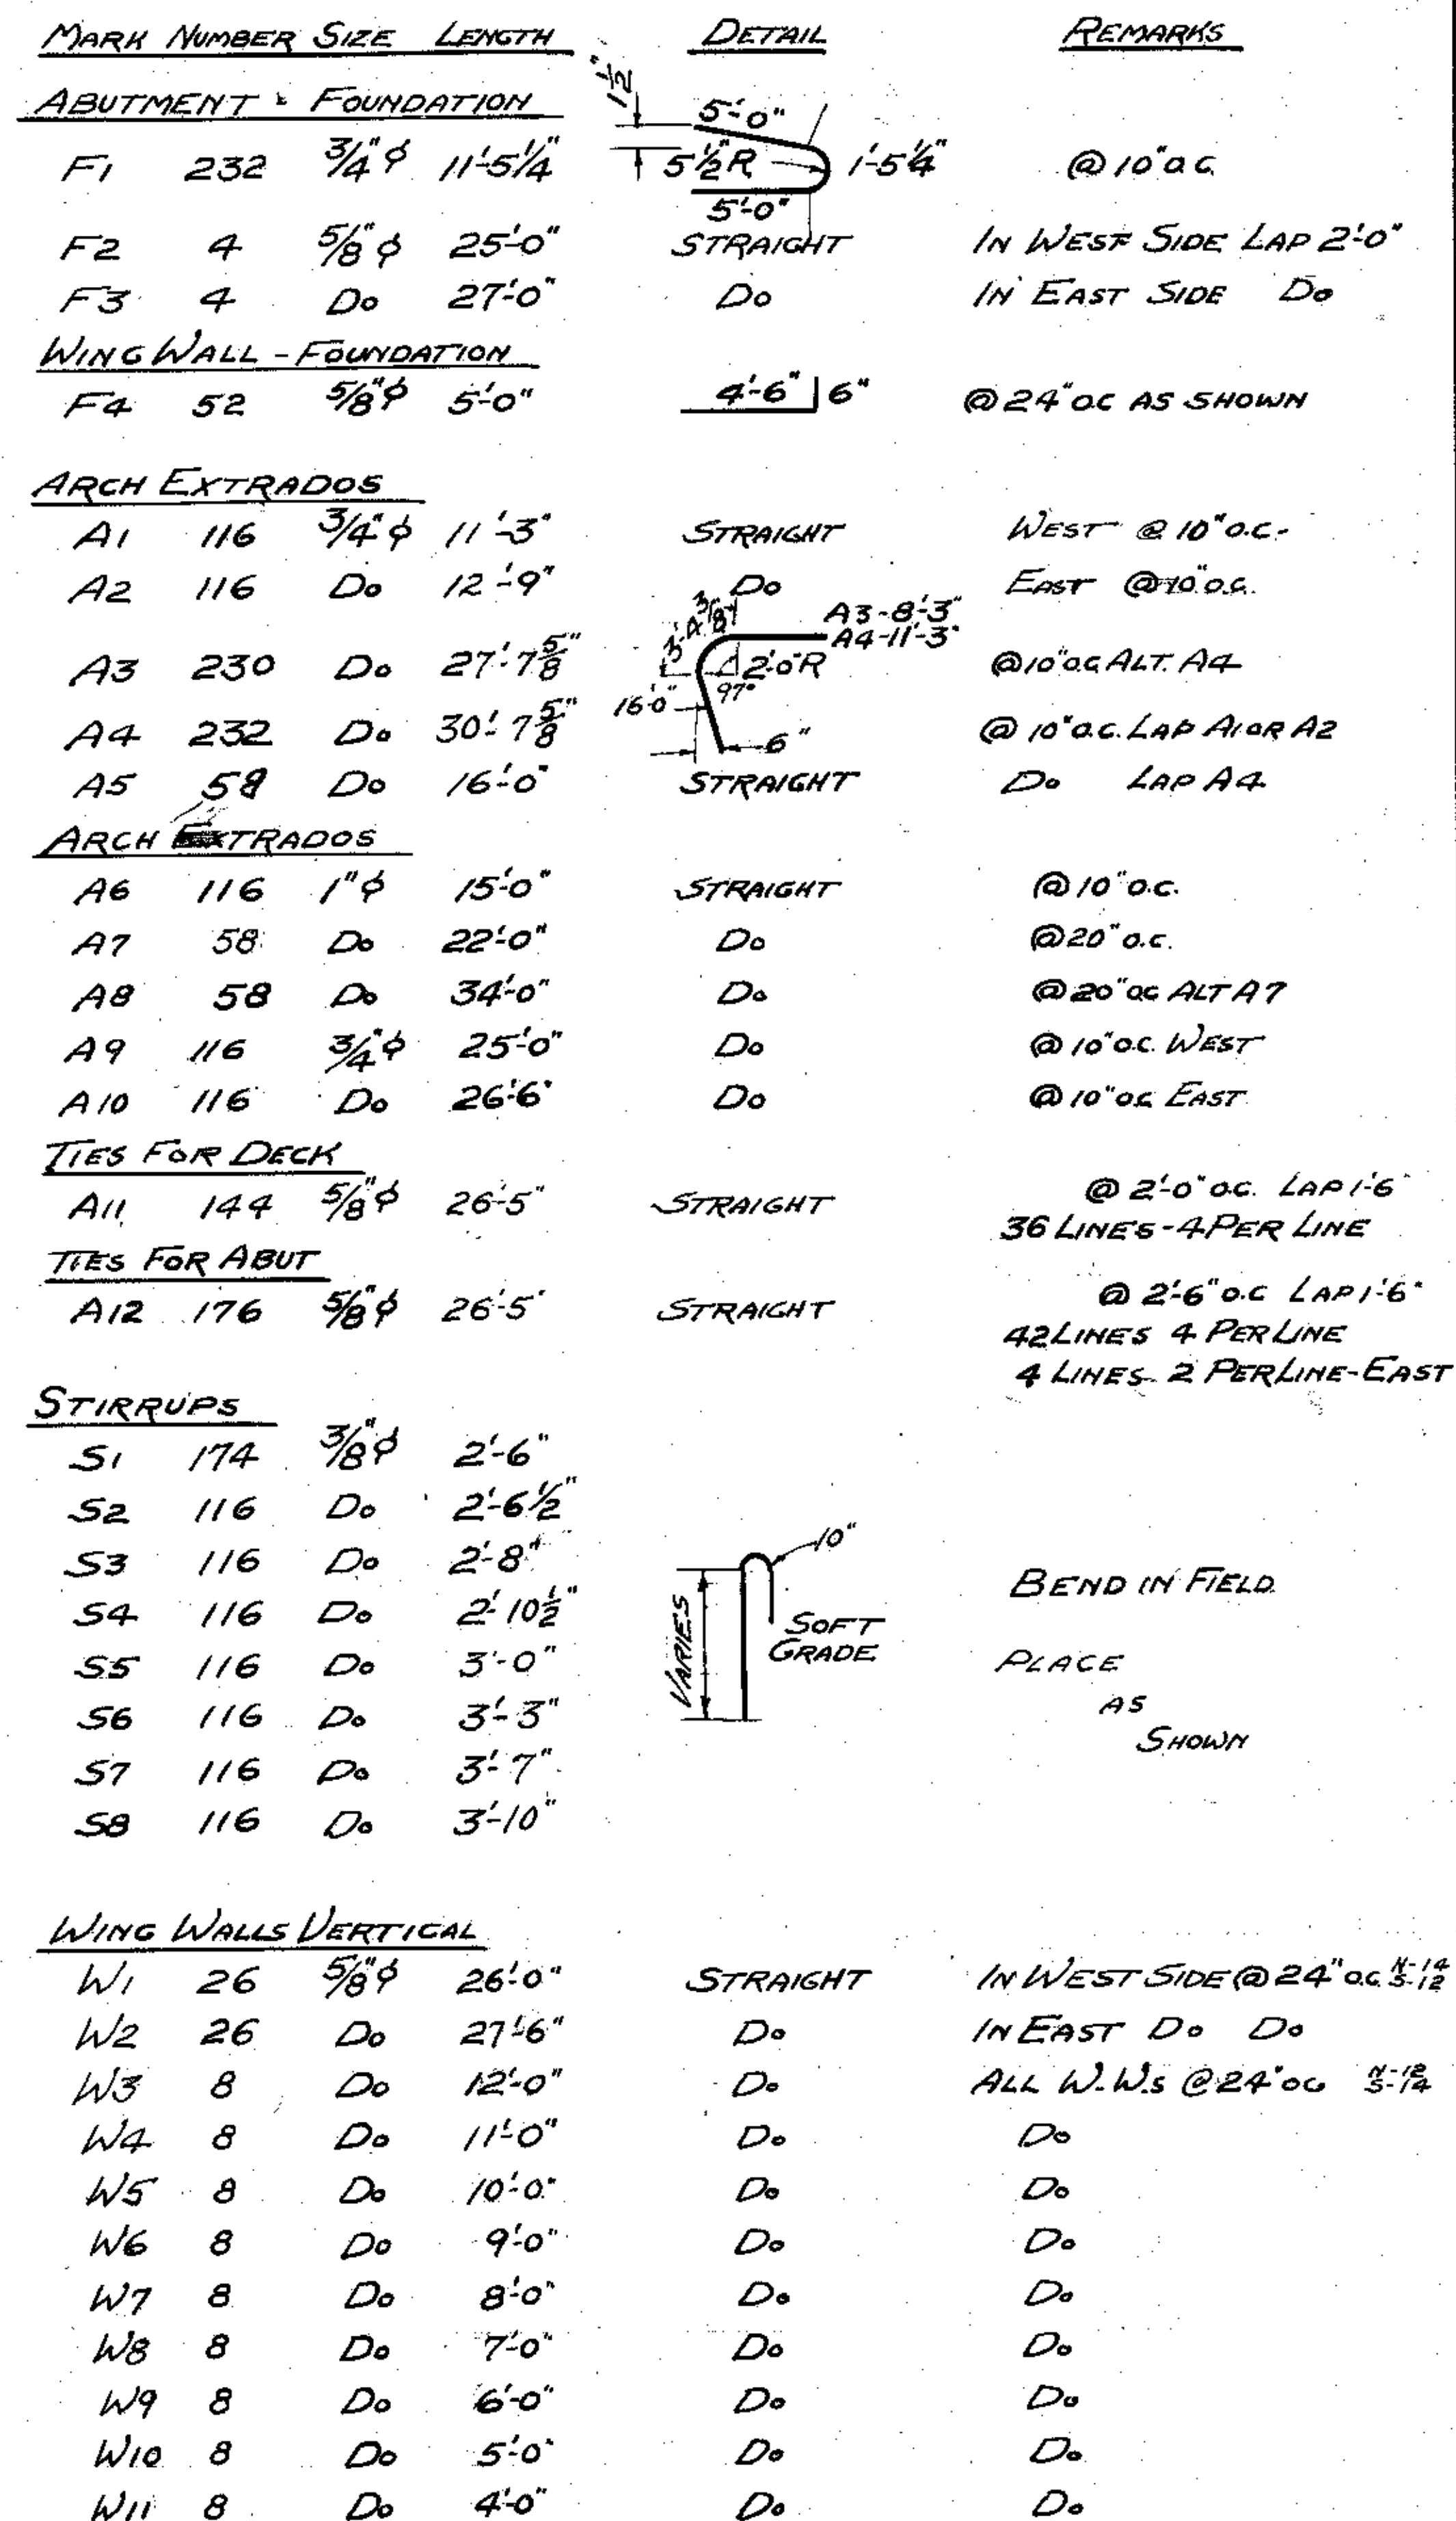 MARK NUMBER SIZE LENGTH DETAIL REMARKS
ABUTMENT & FOUNDATION
1½"
5'-0"
F1 232 3/4"ϕ 11'-5¼" 5½"R 1'-5¼" @ 10"o.c.
5'-0"
F2 4 5/8"ϕ 25'-0" STRAIGHT IN WEST SIDE LAP 2'-0"
F3 4 Do 27'-0" Do IN EAST SIDE Do
WING WALL - FOUNDATION
F4 52 5/8"ϕ 5'-0" 4'-6" 6" @ 24"o.c AS SHOWN
ARCH EXTRADOS
A1 116 3/4"ϕ 11'-3" STRAIGHT WEST @ 10"o.c.
A2 116 Do 12'-9" Do EAST @ 10"o.c.
3'-4 3/8" A3-8'-3"
A4-11'-3"
A3 230 Do 27'-7 5/8" 2'-0"R @10"o.c. ALT. A4
16'-0" 97°
A4 232 Do 30'-7 5/8" 6" @ 10"o.c. LAP A1 OR A2
A5 58 Do 16'-0" STRAIGHT Do LAP A4
ARCH TRADOS
A6 116 1"ϕ 15'-0" STRAIGHT @ 10"o.c.
A7 58 Do 22'-0" Do @20"o.c.
A8 58 Do 34'-0" Do @ 20"oc ALT A7
A9 116 3/4"ϕ 25'-0" Do @ 10"o.c. WEST
A10 116 Do 26'-6" Do @ 10"o.c. EAST
TIES FOR DECK
A11 144 5/8"ϕ 26'-5" STRAIGHT @ 2'-0"o.c. LAP 1'-6"
36 LINES - 4 PER LINE
TIES FOR ABUT
A12 176 5/8"ϕ 26'-5" STRAIGHT @ 2'-6"o.c LAP 1'-6"
42 LINES 4 PER LINE
4 LINES 2 PER LINE-EAST
STIRRUPS
S1 174 3/8"ϕ 2'-6"
S2 116 Do 2'-6½"
S3 116 Do 2'-8" 10"
S4 116 Do 2'-10½" VARIES SOFT GRADE BEND IN FIELD
S5 116 Do 3'-0" PLACE
S6 116 Do 3'-3" AS
S7 116 Do 3'-7" SHOWN
S8 116 Do 3'-10"
WING WALLS VERTICAL
W1 26 5/8"ϕ 26'-0" STRAIGHT IN WEST SIDE @ 24"o.c. N-14 S-12
W2 26 Do 27'-6" Do IN EAST Do Do
W3 8 Do 12'-0" Do ALL W.W.s @ 24"oc N-12 S-14
W4 8 Do 11'-0" Do Do
W5 8 Do 10'-0" Do Do
W6 8 Do 9'-0" Do Do
W7 8 Do 8'-0" Do Do
W8 8 Do 7'-0" Do Do
W9 8 Do 6'-0" Do Do
W10 8 Do 5'-0" Do Do
W11 8 Do 4'-0" Do Do